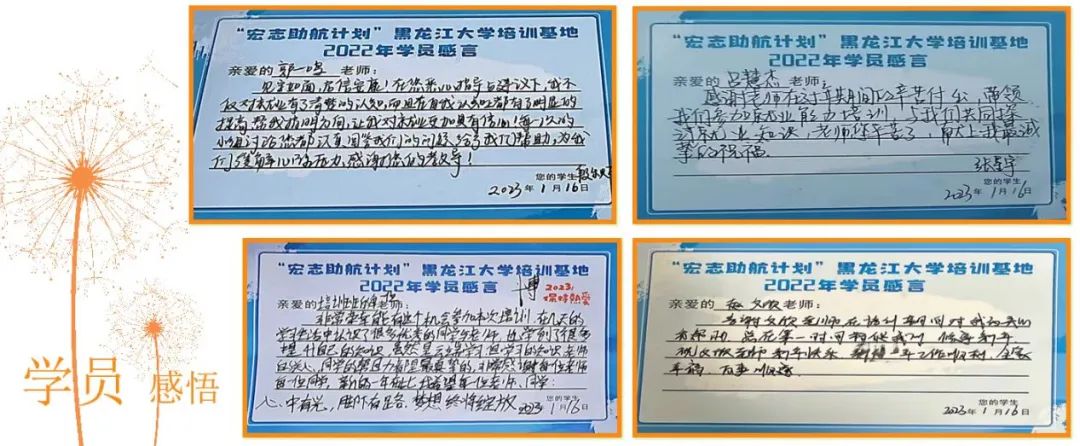 “宏志助航计划”黑龙江大学培训基地
2022年学员感言
亲爱的 郭一鸣 老师：
见字如面，启信安康！在您悉心指导与建议下，我不
仅对未来就业有了清晰的认知，而且在自我认知上都有了明显的
提高，帮我指明方向，让我对未来就业更加具有信心！每一次的
小组讨论您都认真回答我们的问题，给予我们帮助，为我
们缓解心理压力，感谢您的教导！
您的学生
2023年1月16日
“宏志助航计划”黑龙江大学培训基地
2022年学员感言
亲爱的 吕慧杰 老师：
感谢老师在过去期间的辛苦付出，带领
我们参加就业能力培训，与我们共同探
讨就业知识，老师您辛苦了，献上我最诚
挚的祝福
张宇
您的学生
2023年1月16日
“宏志助航计划”黑龙江大学培训基地
2022年学员感言
2023，
保持热爱
亲爱的 培训班 老师：
非常荣幸能有这个机会参加本次培训，在几天的
学习生活中认识了很多优秀的同学老师，也学到了很多
提升自己的知识，虽然是云端学习，但学习的知识、老师
的 同学的 都是最真挚的，非常感谢每位老师
每位同学，新的一年祝每位老师、同学：
心中有光，脚下有路，梦想终将绽放
2023年1月16日
“宏志助航计划”黑龙江大学培训基地
2022年学员感言
亲爱的 文欣 老师：
感谢文欣老师在培训期间对我的
帮助，总在第一时间 值此新年
祝文欣老师新年快乐，新的一年工作顺利，全家
幸福，万事顺遂
您的学生
2023年1月16日
学员 感悟